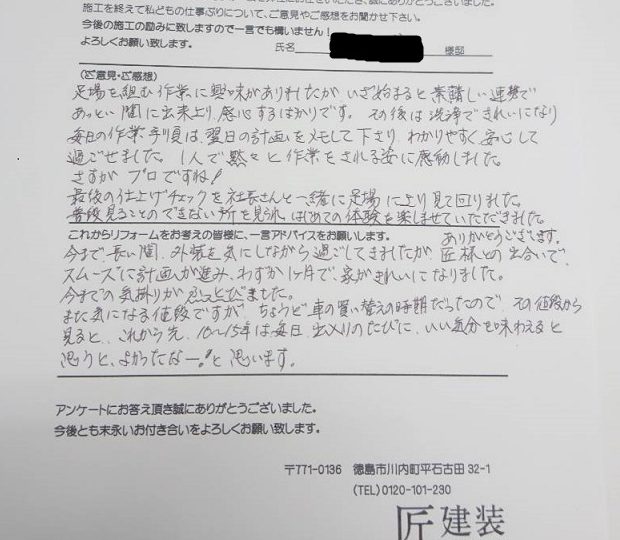 施工を終えて私どもの仕事ぶりについて、ご意見やご感想をお聞かせ下さい。
今後の施工の励みに致しますので一言でも構いません!
よろしくお願い致します。
氏名 様邸
(ご意見・ご感想)
足場を組む作業に興味がありましたが いざ始まると素晴しい連携で
あっとい間に出来上り、感心するばかりです。その後は洗浄できれいになり
毎日の作業手順は、翌日の計画をメモして下さり、わかりやすく安心して
過ごせました。1人で黙々と作業をされる姿に感動しました。
さすが プロですね!
最後の仕上げチェックを社長さんと一緒に足場に上り見て回りました。
普段見ることのできない所を見られ、はじめての体験を楽しませていただきました。
ありがとうございます。
これからリフォームをお考えの皆様に、一言アドバイスをお願いします。
今まで長い間、外装を気にしながら過ごしてきましたが 匠様との出合いで、
スムーズに計画が進み、わずか1ヶ月で、家がきれいになりました。
今までの気掛りがふっとびました。
また気になる値段ですが、ちょうど車の買い替えの時期だったので、その値段から
見ると、これから先、10〜15年は毎日、出入りのたびに、いい気分を味わえると
思うと、よかったなー。と思います。
アンケートにお答え頂き誠にありがとうございました。
今後とも末永いお付き合いをよろしくお願い致します。
〒771-0136 徳島市川内町平石古田 32-1
(TEL) 0120-101-230
匠建装